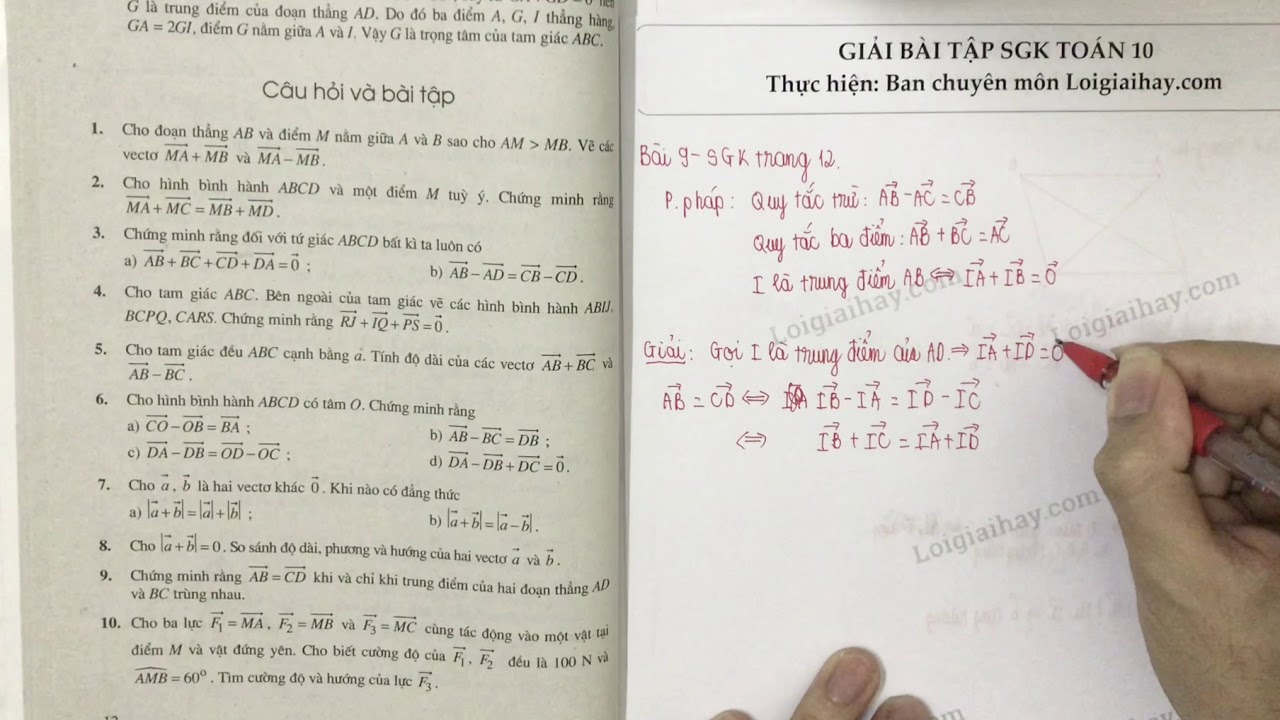 G là trung điểm của đoạn thẳng AD. Do đó ba điểm A, G, I thẳng hàng,
GA = 2GI, điểm G nằm giữa A và I. Vậy G là trọng tâm của tam giác ABC.
Câu hỏi và bài tập
1. Cho đoạn thẳng AB và điểm M nằm giữa A và B sao cho AM > MB. Vẽ các
vectơ $\overrightarrow{MA}+\overrightarrow{MB}$ và $\overrightarrow{MA}-\overrightarrow{MB}$.
2. Cho hình bình hành ABCD và một điểm M tuỳ ý. Chứng minh rằng
$\overrightarrow{MA}+\overrightarrow{MC}=\overrightarrow{MB}+\overrightarrow{MD}$.
3. Chứng minh rằng đối với tứ giác ABCD bất kì ta luôn có
a) $\overrightarrow{AB}+\overrightarrow{BC}+\overrightarrow{CD}+\overrightarrow{DA}=\vec{0}$ ; b) $\overrightarrow{AB}-\overrightarrow{AD}=\overrightarrow{CB}-\overrightarrow{CD}$.
4. Cho tam giác ABC. Bên ngoài của tam giác vẽ các hình bình hành ABIJ,
BCPQ, CARS. Chứng minh rằng $\overrightarrow{RJ}+\overrightarrow{IQ}+\overrightarrow{PS}=\vec{0}$.
5. Cho tam giác đều ABC cạnh bằng a. Tính độ dài của các vectơ $\overrightarrow{AB}+\overrightarrow{BC}$ và
$\overrightarrow{AB}-\overrightarrow{BC}$.
6. Cho hình bình hành ABCD có tâm O. Chứng minh rằng
a) $\overrightarrow{CO}-\overrightarrow{OB}=\overrightarrow{BA}$ ; b) $\overrightarrow{AB}-\overrightarrow{BC}=\overrightarrow{DB}$ ;
c) $\overrightarrow{DA}-\overrightarrow{DB}=\overrightarrow{OD}-\overrightarrow{OC}$ ; d) $\overrightarrow{DA}-\overrightarrow{DB}+\overrightarrow{DC}=\vec{0}$.
7. Cho $\vec{a}$, $\vec{b}$ là hai vectơ khác $\vec{0}$. Khi nào có đẳng thức
a) $|\vec{a}+\vec{b}|=|\vec{a}|+|\vec{b}|$ ; b) $|\vec{a}+\vec{b}|=|\vec{a}-\vec{b}|$.
8. Cho $|\vec{a}+\vec{b}|=0$. So sánh độ dài, phương và hướng của hai vectơ $\vec{a}$ và $\vec{b}$.
9. Chứng minh rằng $\overrightarrow{AB}=\overrightarrow{CD}$ khi và chỉ khi trung điểm của hai đoạn thẳng AD
và BC trùng nhau.
10. Cho ba lực $\overrightarrow{F_1}=\overrightarrow{MA}$, $\overrightarrow{F_2}=\overrightarrow{MB}$ và $\overrightarrow{F_3}=\overrightarrow{MC}$ cùng tác động vào một vật tại
điểm M và vật đứng yên. Cho biết cường độ của $\overrightarrow{F_1}$, $\overrightarrow{F_2}$ đều là 100 N và
$\widehat{AMB}=60°$. Tìm cường độ và hướng của lực $\overrightarrow{F_3}$.
GIẢI BÀI TẬP SGK TOÁN 10
Thực hiện: Ban chuyên môn Loigiaihay.com
Bài 9 - SGK trang 12.
P.pháp: Quy tắc trừ: $\overrightarrow{AB}-\overrightarrow{AC}=\overrightarrow{CB}$
Quy tắc ba điểm: $\overrightarrow{AB}+\overrightarrow{BC}=\overrightarrow{AC}$
I là trung điểm AB ⇔ $\overrightarrow{IA}+\overrightarrow{IB}=\vec{0}$
Loigiaihay.com
Loigiaihay.com
Giải: Gọi I là trung điểm của AD. ⇒ $\overrightarrow{IA}+\overrightarrow{ID}=\vec{0}$
$\overrightarrow{AB}=\overrightarrow{CD}$ ⇔ $\overrightarrow{IB}-\overrightarrow{IA}=\overrightarrow{ID}-\overrightarrow{IC}$
⇔ $\overrightarrow{IB}+\overrightarrow{IC}=\overrightarrow{IA}+\overrightarrow{ID}$
Loigiaihay.com